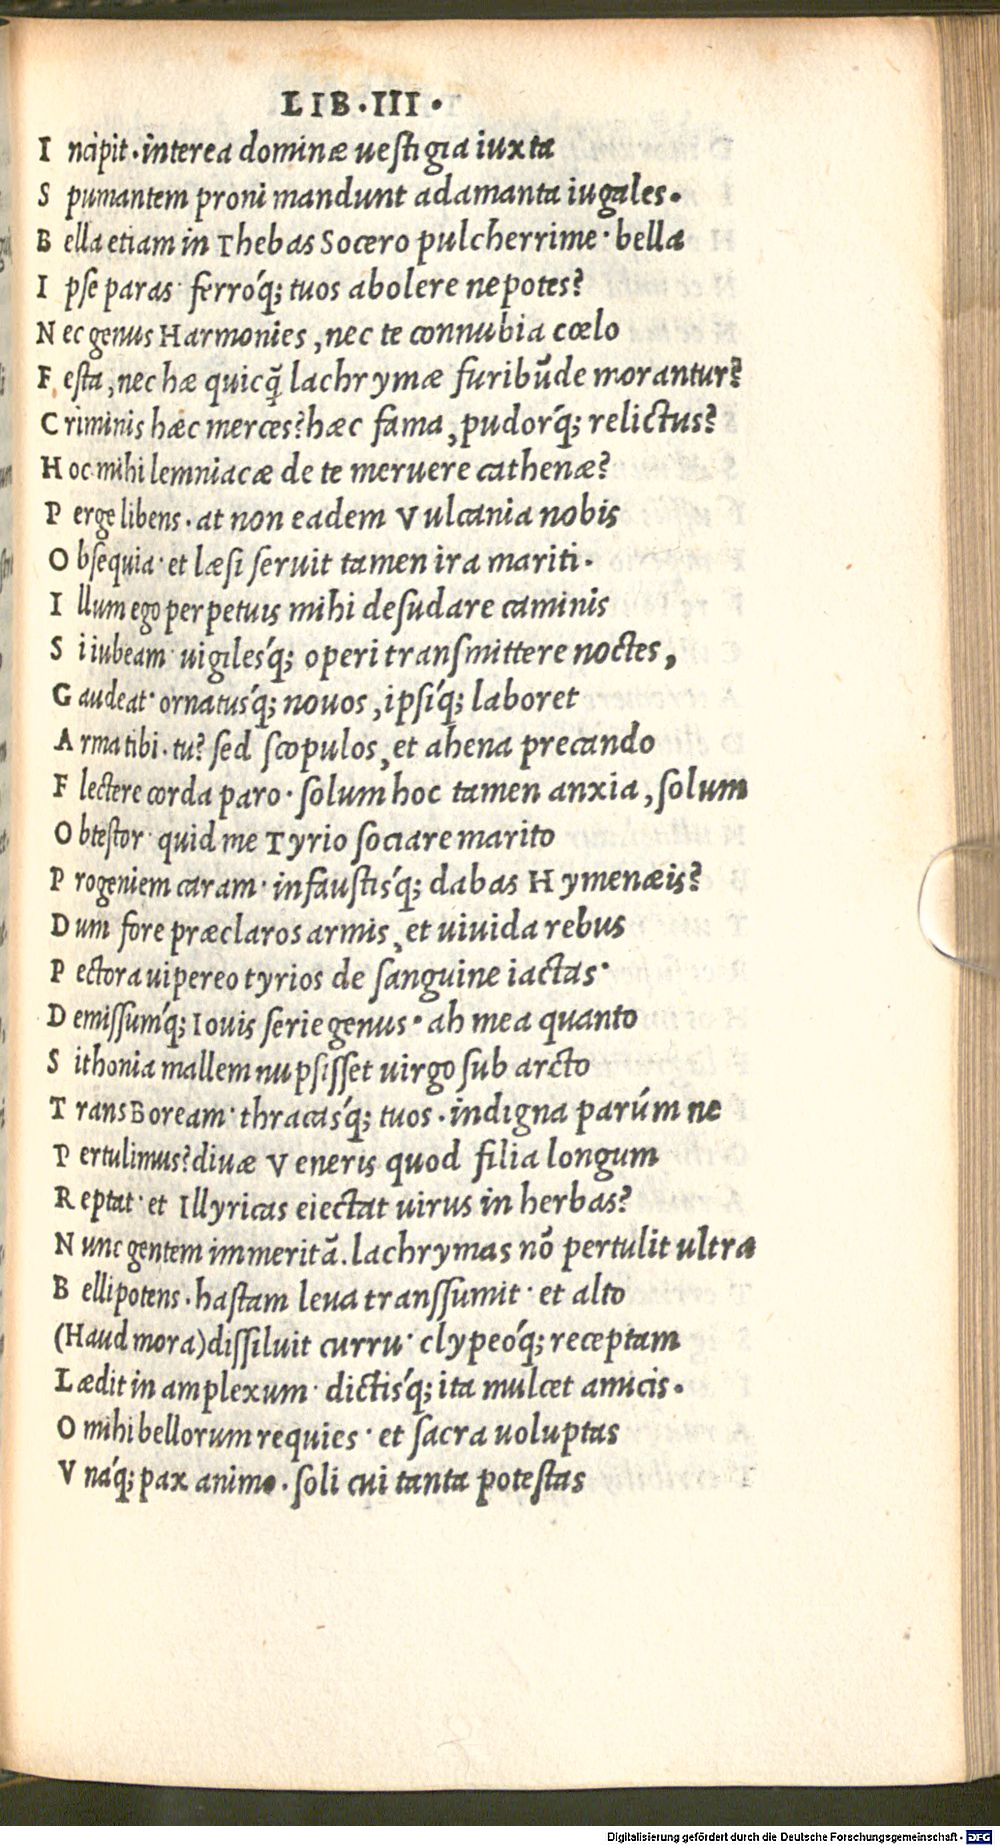 LIB·III·
I ncipit·interea dominæ uestigia iuxta
S pumantem proni mandunt adamanta iugales·
B ella etiam in Thebas Socero pulcherrime·bella
I pse paras·ferróq́; tuos abolere nepotes?
N ec genus Harmonies, nec te connubia cœlo
F esta, nec hæ quicq̃ lachrymæ furibũde morantur?
C riminis hæc merces? hæc fama, pudorq́; relictus?
H oc mihi lemniacæ de te meruere cathenæ?
P erge libens·at non eadem Vulcania nobis
O bsequia·et læsi seruit tamen ira mariti·
I llum ego perpetuis mihi desudare caminis
S i iubeam·uigilesq́; operi transmittere noctes,
G audeat·ornatusq́; nouos, ipsiq́; laboret
A rma tibi·tu? sed scopulos, et ahena precando
F lectere corda paro·solum hoc tamen anxia, solum
O btestor·quid me Tyrio sociare marito
P rogeniem caram·infaustisq́; dabas Hymenæis?
D um fore præclaros armis, et uiuida rebus
P ectora uipereo tyrios de sanguine iactas·
D emissumq́; Iouis serie genus·ah mea quanto
S ithonia mallem nupsisset uirgo sub arcto
T rans Boream·thracasq́; tuos·indigna parúm ne
P ertulimus? diuæ Veneris quod filia longum
R eptat·et Illyricas eiectat uirus in herbas?
N unc gentem immeritã. lachrymas nõ pertulit ultra
B ellipotens·hastam leua transsumit·et alto
(Haud mora) dissiluit curru·clypeóq́; receptam
L ædit in amplexum·dictisq́; ita mulcet amicis·
O mihi bellorum requies·et sacra uoluptas
V náq́; pax animo·soli cui tanta potestas
Digitalisierung gefördert durch die Deutsche Forschungsgemeinschaft - DFG